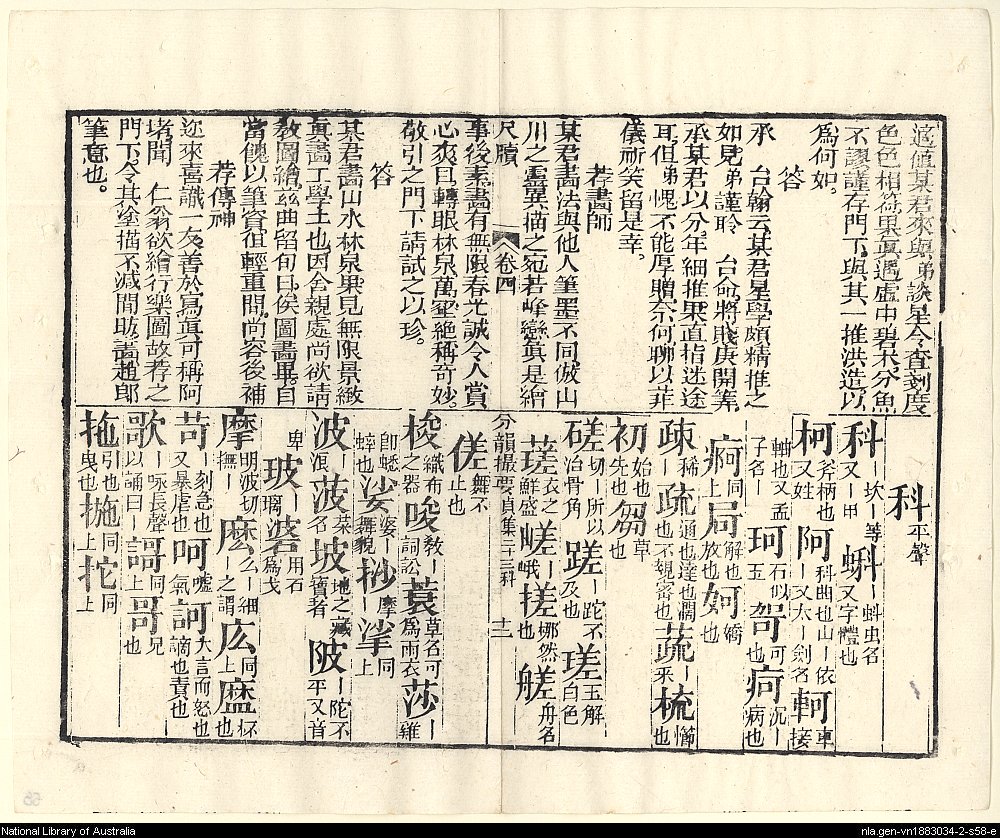 適値某君來與弟談星令查刻度
色色相符果眞遇虛中碧木分魚
不謬謹存門下與其一推洪造以
爲何如
答
承 台翰云某君星學頗精推之
如見弟謹聆 台命將賤庚開筭
承某君以分年細推果直指迷途
耳但弟愧不能厚贈奈何聊以菲
儀祈笑留是幸
荐畫師
某君畫法與他人筆墨不同倣山
川之靈異描之宛若峰巒眞是繪
尺牘 卷四
事後素畫有無限春光誠令人賞
心爽目轉眼林泉萬壑絶稱奇妙
敬引之門下請試之以珍。
答
某君畵山水林泉果見無限景緻
眞畵工學士也因舍親處尚欲請
敎圖繪玆曲留旬日俟圖畫畢自
當餽以筆資但輕重間尚容後補
荐傳神
迩來喜識一友善於寫眞可稱阿
堵聞 仁翁欲繪行樂圖故荐之
門下令其塗描不減閒昉畵趙郎
筆意也。
科 平聲
科 丨坎丨等又丨甲 蝌 丨蚪虫名又字體也
柯 斧柄也又姓 阿 丨科曲也山丨依丨又太丨劍名 軻 車接
軸也又孟子名丨 珂 石似玉 哿 可也 疴 沉丨病也
痾 同上 局 解也放也 妸 嬌也
疎 稀丨 疏 通也達也濶也不親密也 蔬 丨釆 梳 丨櫛也
初 始也先也 芻 草也
磋 切丨所以治骨角 蹉 丨跎不及也 瑳 玉觧白色
蒫 衣之鮮盛 嵯 丨峨 搓 挪然也 艖 舟名
分韻撮要貞集 三十三科 十二
傞 舞不止也
梭 織布之器 唆 敎丨詞訟 蓑 草名可爲雨衣 莎 丨雞
卽蟋蟀也 娑 婆丨舞貌 挱 摩丨 挲 同上
波 丨浪 菠 丨菜名 坡 地之藏寶者 陂 丨陀不平又音
卑 玻 丨璃 碆 用石爲戈
摩 明波切撫丨 麼 么丨細丨之謂 庅 同上 塺 坏也
苛 丨刻急也又暴虐也 呵 噓氣 訶 大言而怒也謫也責也
歌 丨咏長聲以誦曰丨 謌 同上 哥 兄也
拖 引也曳也 拖 同上 扡 同上
National Library of Australia
nla.gen-vn1883034-2-s58-e